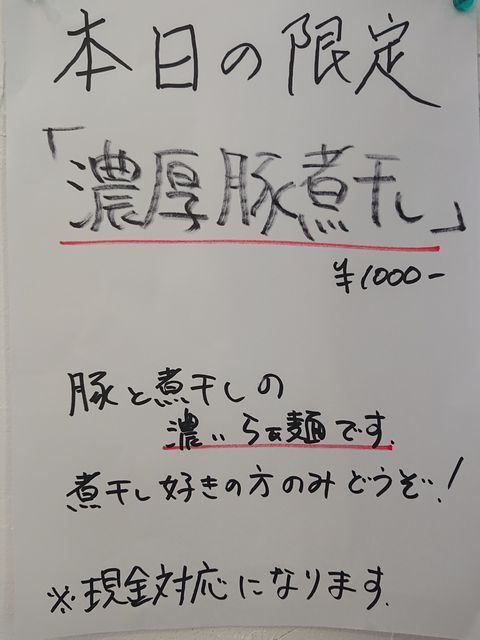 本日の限定
「濃厚豚煮干し」
¥1000-
豚と煮干しの
濃いらぁ麺です.
煮干し好きの方のみどうぞ!
※現金対応になります.